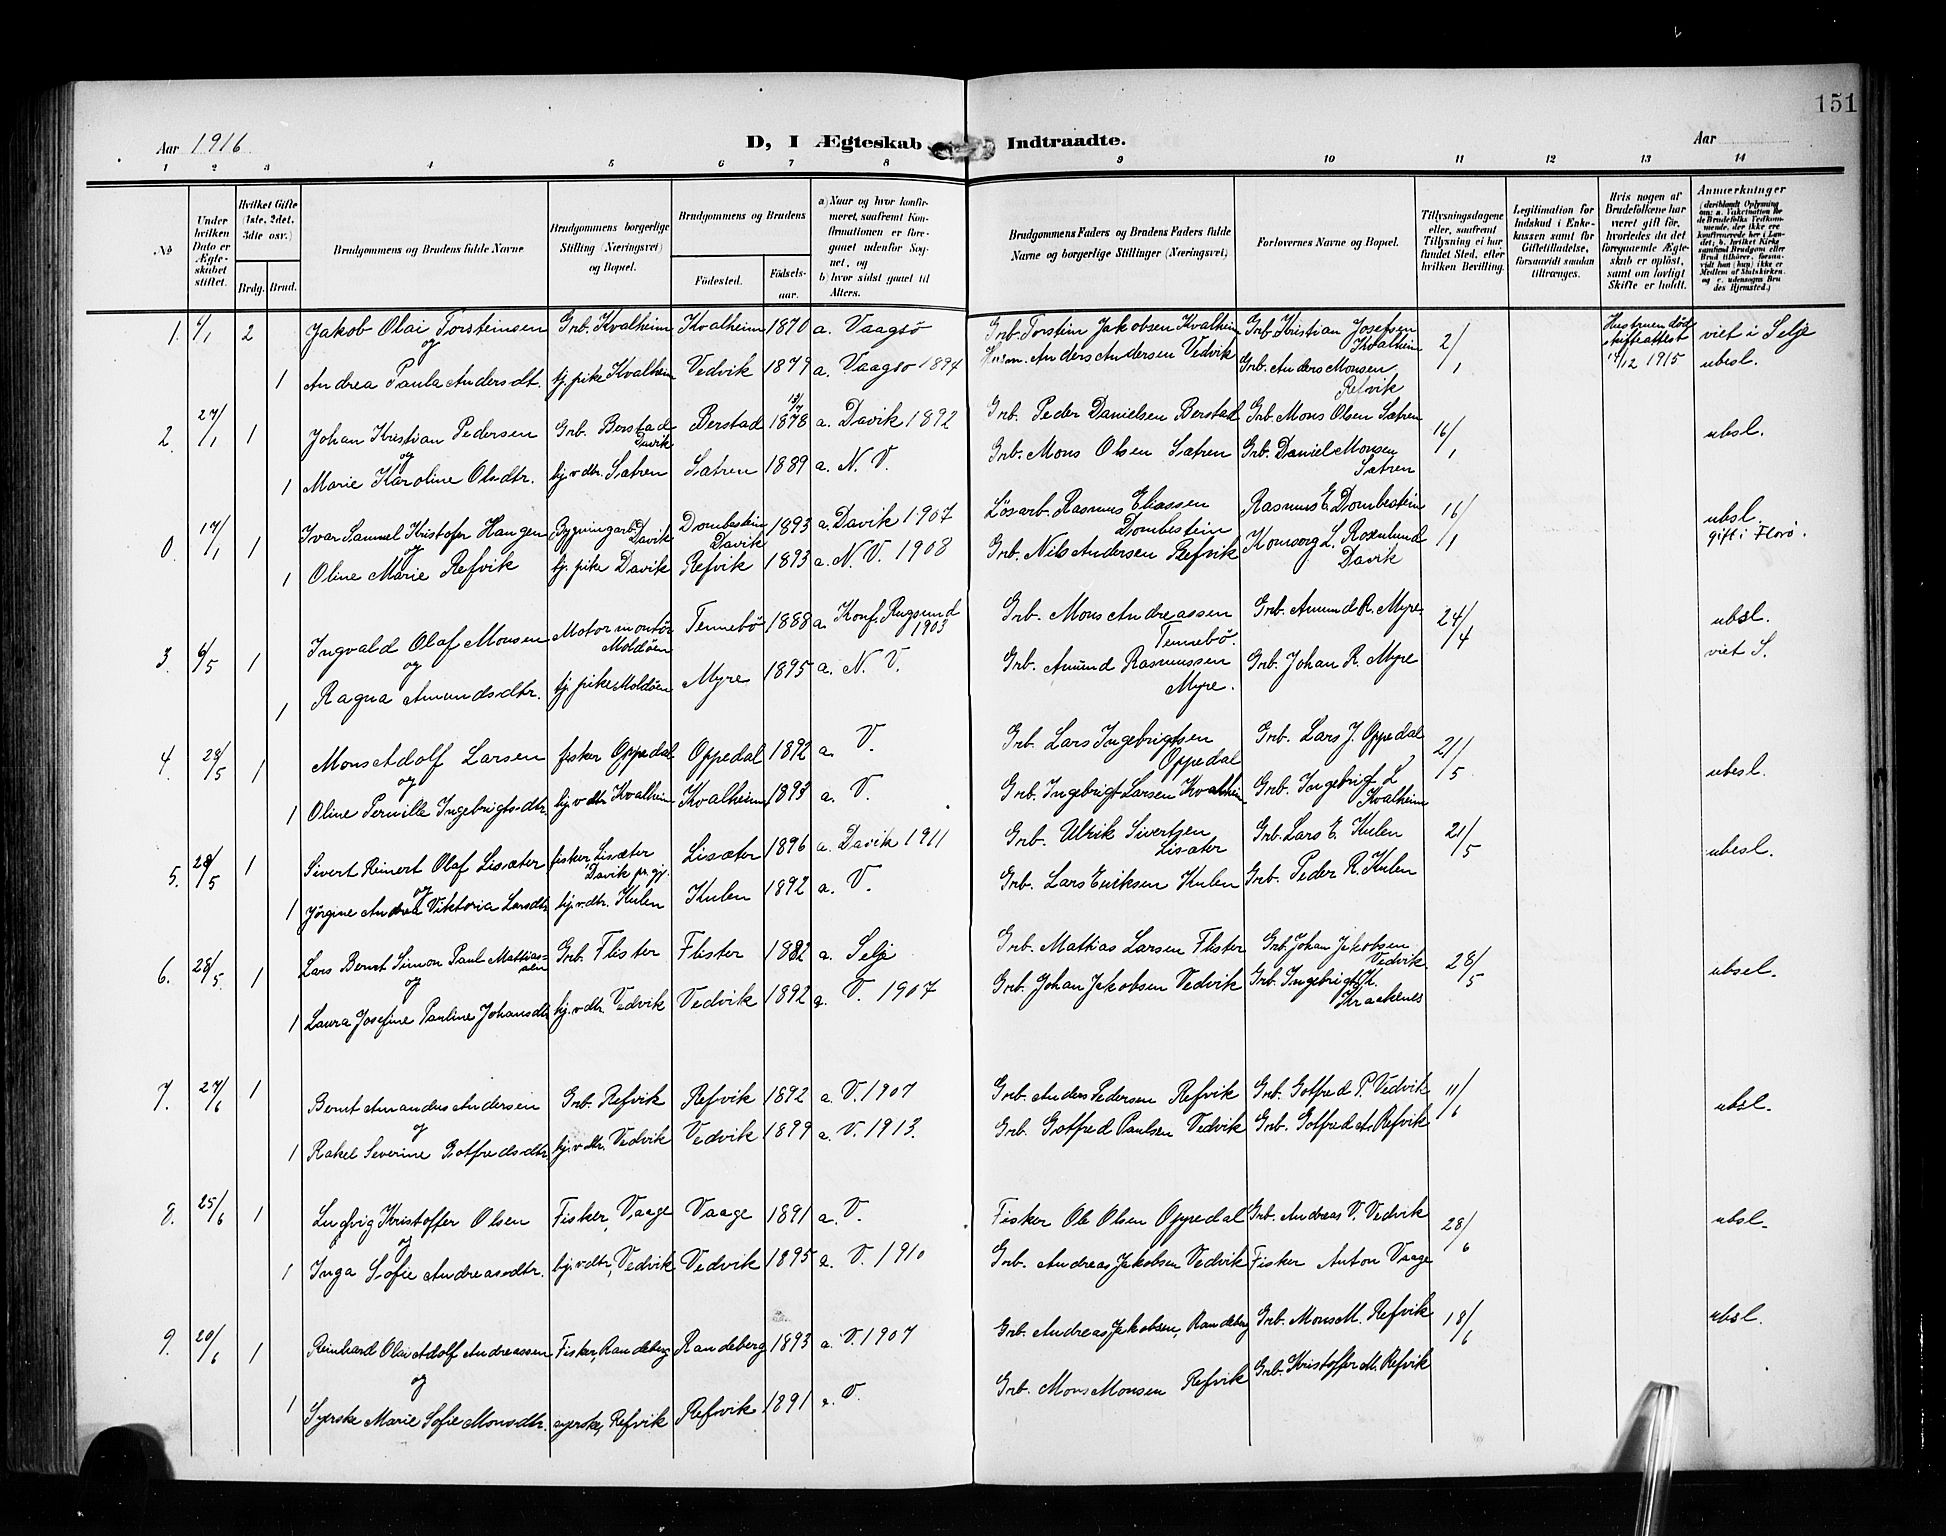 151
Aar 1916
D, I Ægteskab Indtraadte.
Aar
1 2 3 4 5 6 7 8 9 10 11 12 13 14
№
Under hvilken Dato er Ægteskabet stiftet.
Hvilket Gifte (1ste, 2det, 3dte osv.)
Brdg. Brud.
Brudgommens og Brudens fulde Navne
Brudgommens borgerlige Stilling (Næringsvei) og Bopæl.
Brudgommens og Brudens
Födested.
Födselsaar.
a) Naar og hvor konfirmeret, saafremt Konfirmationen er foregaaet udenfor Sognet, og
b) hvor sidst gaaet til Alters.
Brudgommens Faders og Brudens Faders fulde Navne og borgerlige Stillinger (Næringsvei)
Forlovernes Navne og Bopæl.
Tillysningsdagene eller, saafremt Tillysning ei har fundet Sted, efter hvilken Bevilling.
Legitimation for Indskud i Enkekassen samt for Giftetilladelse, forsaavidt saadan tiltrænges.
Hvis nogen af Brudefolkene har været gift för, hvorledes da det foregaaende Ægteskab er oplöst, samt om lovligt Skifte er holdt.
Anmerkninger
(deriblandt Oplysning om: a. Vakcination for de Brudefolks Vedkommende, der ikke ere konfirmerede her i Landet; b. hvilket Kirkesamfund Brudgom eller Brud tilhörer, forsaavidt han (hun) ikke er Medlem af Statskirken, og c. udensogns Brudes Hjemsted.)
1. 4/1 2 Jakob Olai Torsteinsen Grb. Kvalheim Kvalheim 1870 a. Vaagsö Grb. Torstein Jakobsen Kvalheim Grb. Kristian Josefsen Kvalheim 2/1 Hustruen död skifteattest 17/12 1915 viet i Selje
og
1 Andrea Paula Andersdt. tj. pike Kvalheim Vedvik 1879 a. Vaagsö 1894 Husm. Anders Andersen Vedvik Grb. Anders Monsen Refvik ubesl.
2. 27/1 1 Johan Kristian Pedersen Grb. Berstad Davik Berstad 15/7 1878 a. Davik 1892 Grb. Peder Danielsen Berstad Grb. Mons Olsen Sætren 16/1 ubsl.
og
1 Marie Karoline Olsdtr. hj.v.dtr. Sætren Sætren 1889 a. N. V. Grb. Mons Olsen Sætren Grb. Daniel Monsen Sætren
0. 17/1 1 Ivar Samuel Kristofer Haugen Bygningarb. Davik Dombestein Davik 1893 a. Davik 1907 Lösarb. Rasmus Eliassen Dombestein Rasmus E. Dombestein 16/1 ubsl. gift i Florö.
og
1 Oline Marie Refvik tj. pike Davik Refvik 1893 a. N. V. 1908 Grb. Nils Andersen Refvik L. Rosenlund Davik
3. 6/5 1 Ingvald Olaf Monsen Motormontör Moldöen Tennebö 1888 a. Konf. Rugsund 1903 Grb. Mons Andreassen Tennebö. Grb. Amund R. Myre 24/4 ubsl.
og
1 Ragna Amundsdtr. tj. pike Moldöen Myre 1895 a. N. V. Grb. Amund Rasmussen Myre. Grb. Johan R. Myre viet S.
4. 28/5 1 Mons Adolf Larsen fisker Oppedal Oppedal 1892 a. V. Grb. Lars Ingebrigtsen Oppedal Grb. Lars J. Oppedal 21/5 ubesl.
og
1 Oline Pernille Ingebrigtsdtr hj.v.dtr Kvalheim Kvalheim 1893 a. V. Grb. Ingebrigt Larsen Kvalheim Grb. Ingebrigt L Kvalheim
5. 28/5 1 Sivert Reinert Olaf Lisæter fisker Lisæter Davik pr.gj. Lisæter 1896 a. Davik 1911 Grb. Ulrik Sivertsen Lisæter Grb. Lars E. Hulen 21/5 ubesl.
og
1 Jörgine Andrea Viktoria Larsdtr hj.v.dtr. Hulen Hulen 1892 a. V. Grb. Lars Eriksen Hulen Grb. Peder R. Hulen
6. 28/5. 1 Lars Bernt Simon Paul Mathiassen Grb. Flister Flister 1882 a. Selje Grb. Mathias Larsen Flister Grb. Johan Jakobsen Vedvik 28/5 ubsel.
og
1 Laura Josefine Pauline Johansdtr hj.v.dtr. Vedvik Vedvik 1892 a. V. 1907 Grb. Johan Jakobsen Vedvik Grb. Ingebrigt K. Kraakenes
7. 27/6 1 Bernt Amandus Andersen Grb. Refvik Refvik 1892 a. V. 1907 Grb. Anders Pedersen Refvik Grb. Gotfred P. Vedvik 11/6 ubsl.
og
1 Rakel Severine Gotfredsdtr hj.v.dtr. Vedvik Vedvik 1899 a. V. 1913. Grb. Gotfred Paulsen Vedvik Grb. Gotfred A. Refvik
8. 25/6 1 Ludvig Kristoffer Olsen Fisker, Vaage Vaage 1891 a. V. Fisker Ole Olsen Oppedal Grb. Andreas V. Vedvik 28/6 ubsl.
og
1 Inga Sofie Andreasdtr. hj.v.dtr, Vedvik Vedvik 1895 a. V. 1910 Grb. Andreas Jakobsen Vedvik Fisker Anton Vaage
9. 20/6 1 Reinhard Olai Adolf Andreassen Fisker, Randeberg Randeberg 1893 a. V. 1907 Grb. Andreas Jakobsen, Randeberg Grb. Mons M. Refvik 18/6 ubsl.
og
1 Syerske Marie Sofie Monsdtr. syerske, Refvik Refsvik 1891 a. V. Grb. Mons Monsen Refvik Grb. Kristoffer M. Refvik